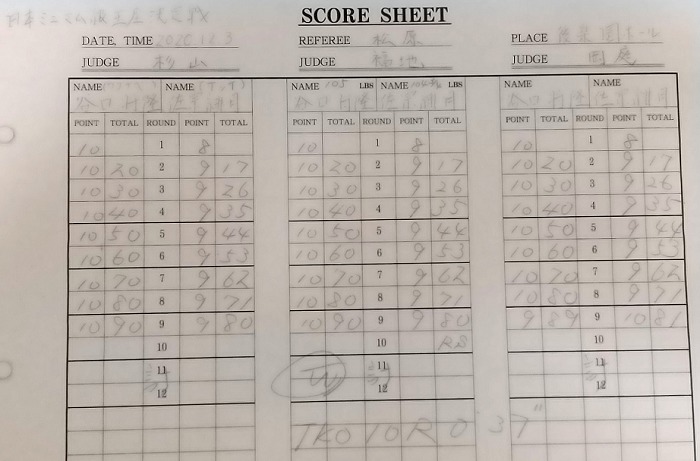 日本ミニマム級王座決定戦
SCORE SHEET
DATE, TIME 2020.11.3 REFEREE 松原 PLACE 後楽園ホール
JUDGE 杉山 JUDGE 福地 JUDGE
NAME NAME NAME 105 LBS NAME LBS NAME NAME
谷口将隆 佐宗緋月 谷口将隆 佐宗緋月 谷口将隆 佐宗緋月
POINT TOTAL ROUND POINT TOTAL POINT TOTAL ROUND POINT TOTAL POINT TOTAL ROUND POINT TOTAL
10 1 8 10 1 8 10 1 8
10 20 2 9 17 10 20 2 9 17 10 20 2 9 17
10 30 3 9 26 10 30 3 9 26 10 30 3 9 26
10 40 4 9 35 10 40 4 9 35 10 40 4 9 35
10 50 5 9 44 10 50 5 9 44 10 50 5 9 44
10 60 6 9 53 10 60 6 9 53 10 60 6 9 53
10 70 7 9 62 10 70 7 9 62 10 70 7 9 62
10 80 8 9 71 10 80 8 9 71 10 80 8 9 71
10 90 9 9 80 10 90 9 9 80 9 89 9 10 81
10 10 RS 10
11 11 11
12 W 12 12
TKO 10R 0'37"